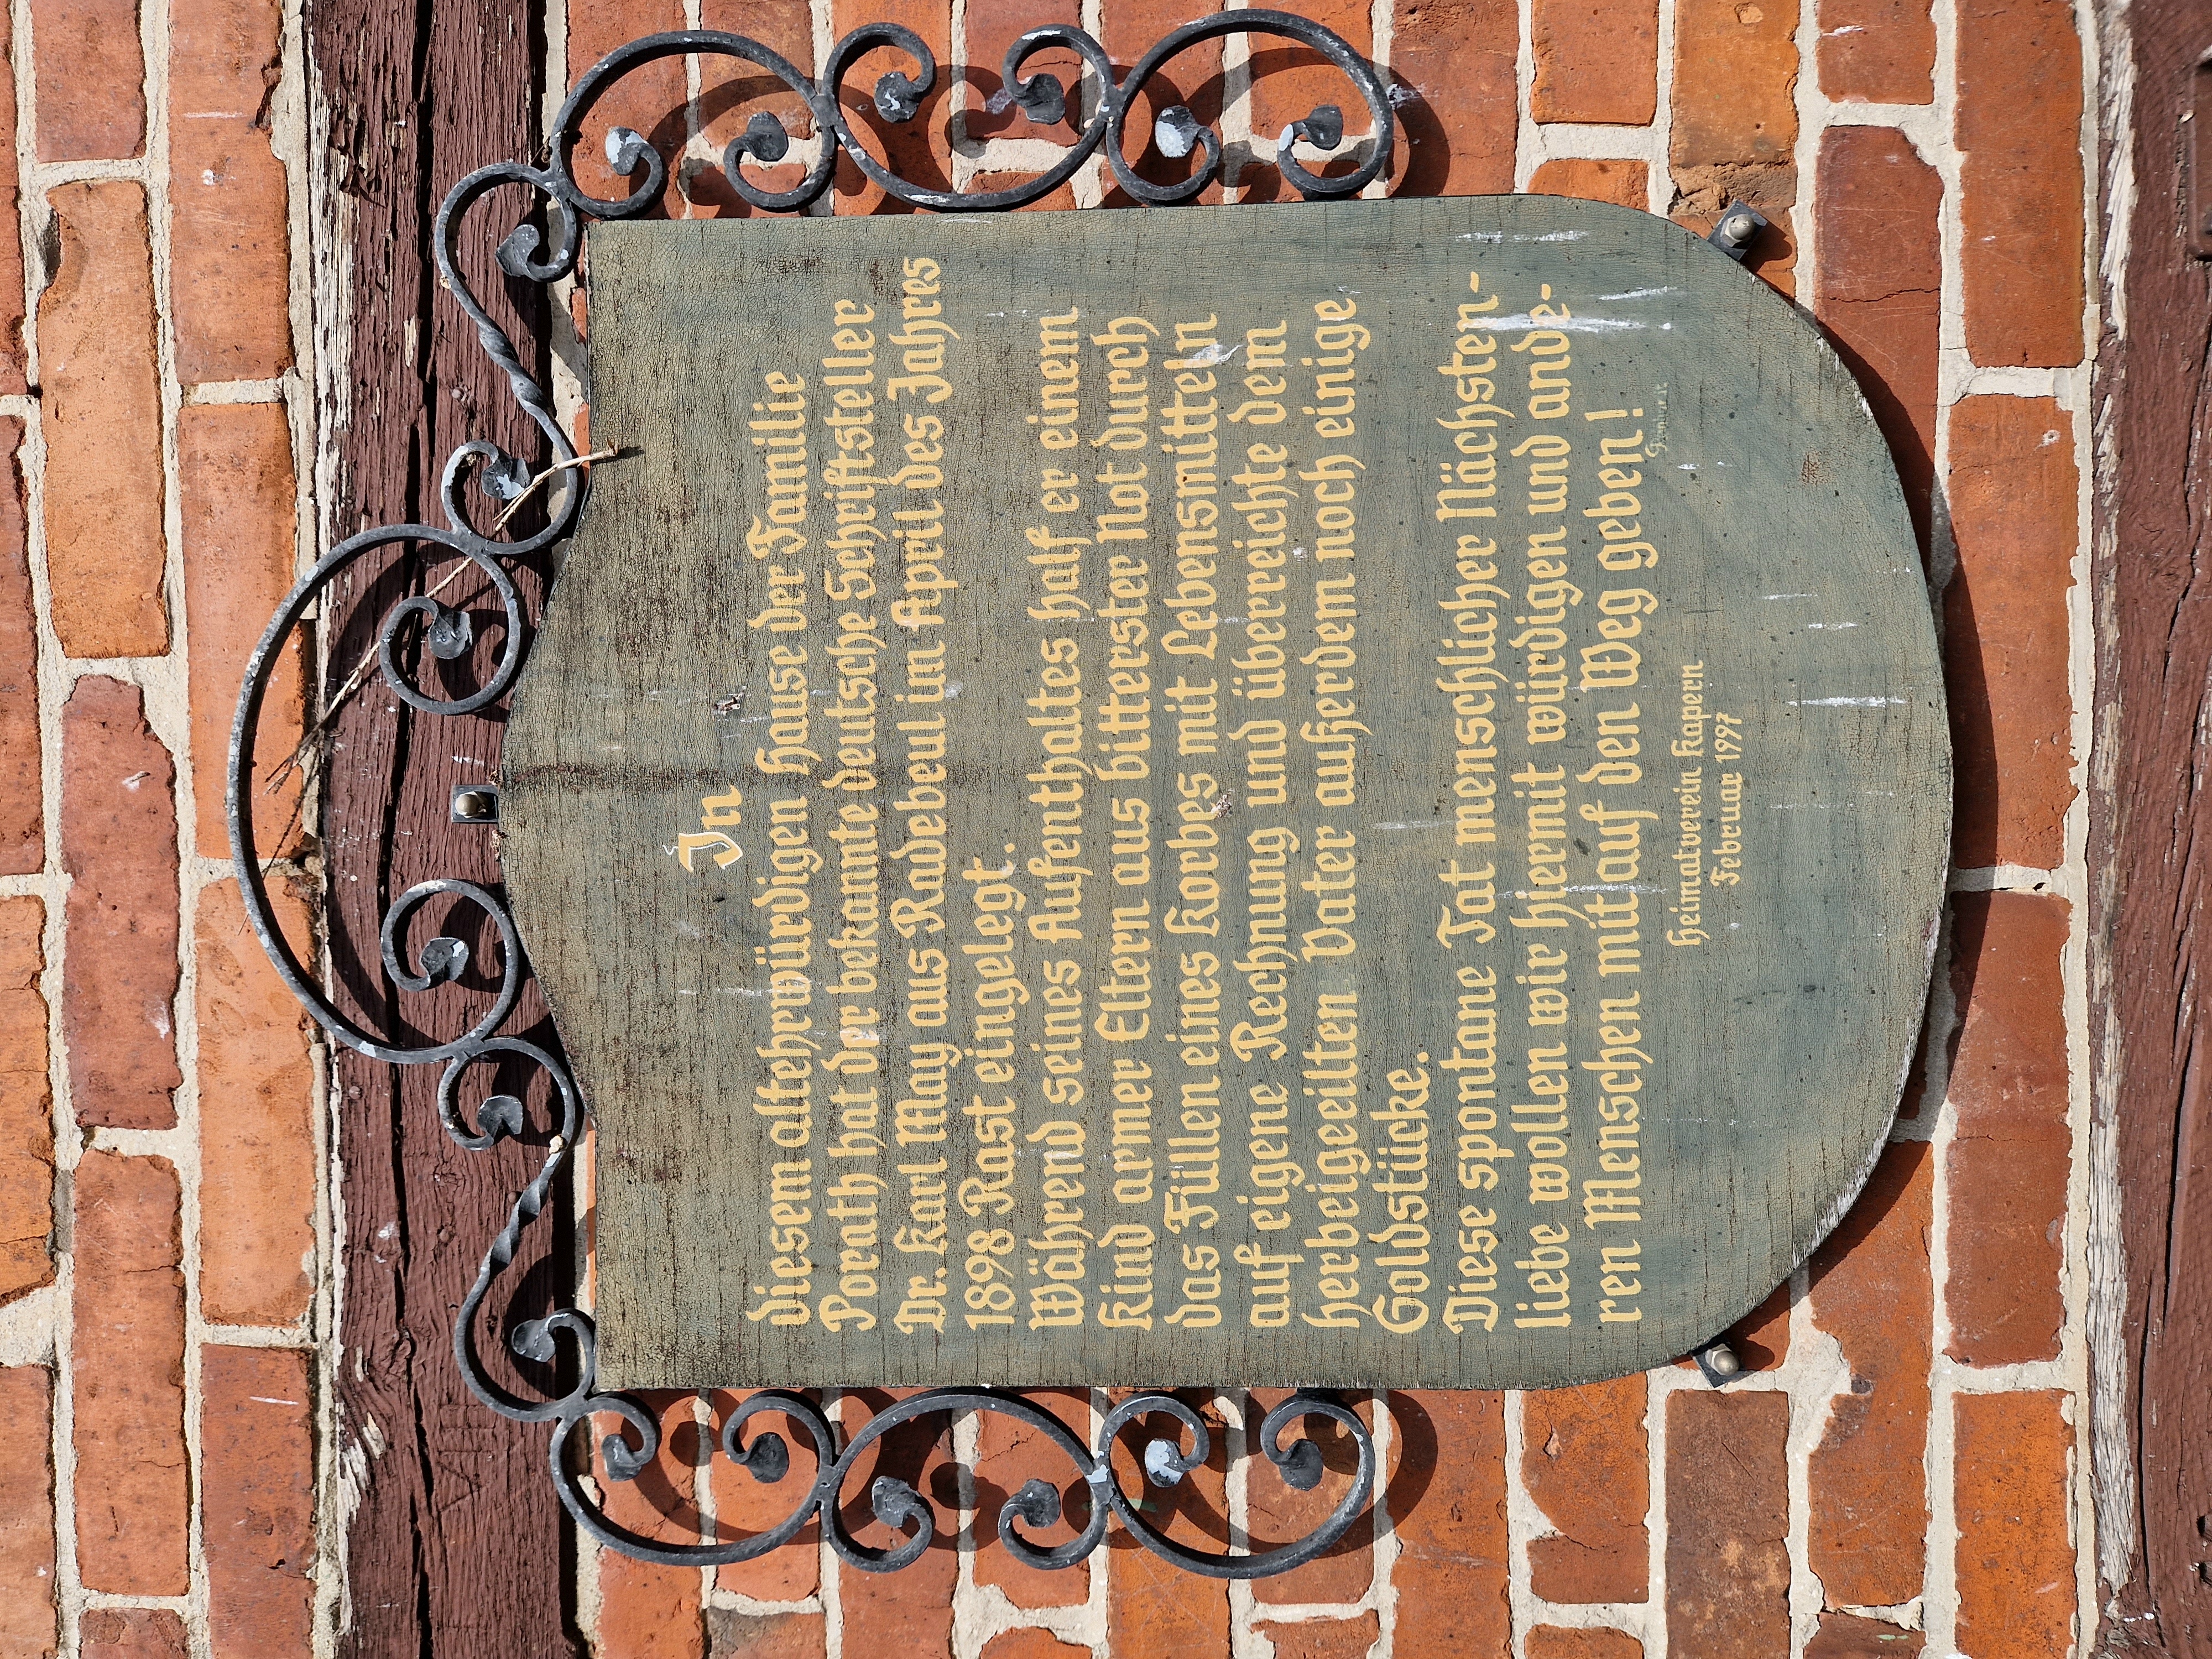 In
diesem altehrwürdigen Hause der Familie
Porath hat der bekannte deutsche Schriftsteller
Dr. Karl May aus Radebeul im April des Jahres
1898 Rast eingelegt.
Während seines Aufenthaltes half er einem
Kind armer Eltern aus bitterster Not durch
das Füllen eines Korbes mit Lebensmitteln
auf eigene Rechnung und überreichte dem
herbeigeeilten Vater außerdem noch einige
Goldstücke.
Diese spontane Tat menschlicher Nächsten-
liebe wollen wir hiermit würdigen und ande-
ren Menschen mit auf den Weg geben!
Heimatverein Kapern
Februar 1997